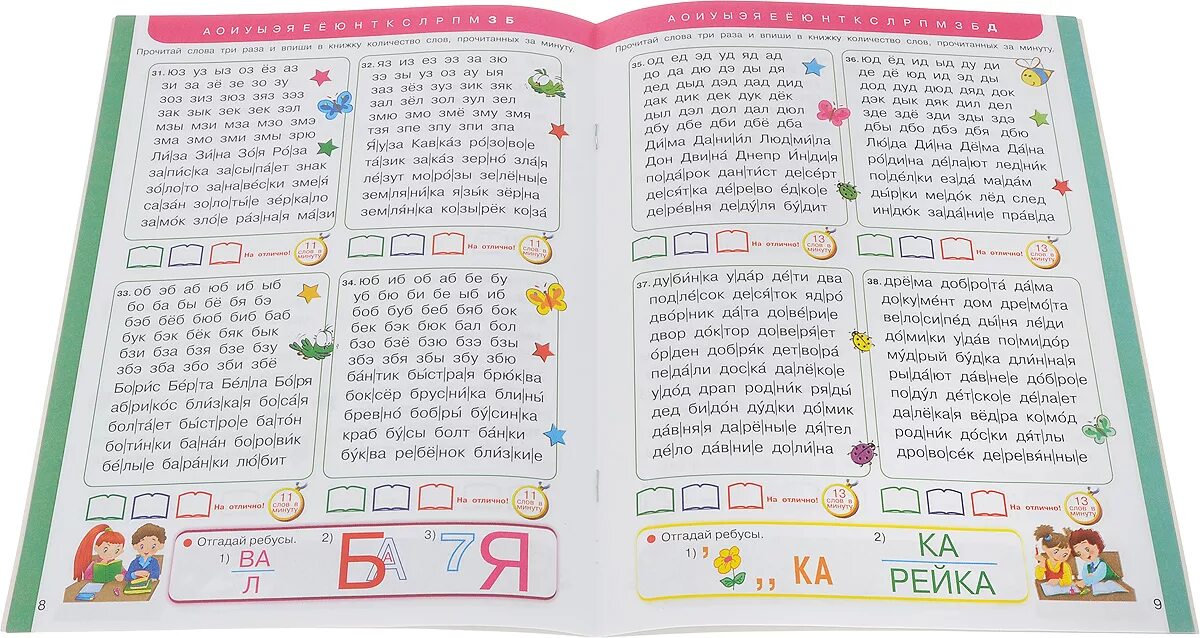 А О И У Ы Э Я Е Ё Ю Н Т К С Л Р П М З Б
Прочитай слова три раза и впиши в книжку количество слов, прочитанных за минуту.
31. юз уз ыз оз ёз аз
зи за зё зе зо зу
зоз зиз зюз зяз зэз
зак зык зек зек зэл
мзы мзи мза мзо мзэ
зма змо зми змы зрю
Ли|за Зи́|на Зо́|я Ро́|за
за|пи́с|ка за|сы|па́|ет знак
зо́|ло|то за|на|ве́с|ки зме|я́
са|за́н зо|ло|ты́|е зе́р|ка|ло
за|мо́к зло́|е ра́з|на|я ма́|зи
На отлично!
11 слов в минуту
32. яз из ез эз за зю
зэ зы уз оз ау ыя
заз зёз зуз зик зяк
зал зёл зол зул зел
змю змо змё зму змя
тзя зпе зпу зпи зпа
Я́|у|за Кав|ка́з ро́|зо|во|е
та́|зик за|ка́з зер|но́ зла́|я
ле́|зут мо|ро́|зы зе|лё|ны|е
зем|ля|ни́|ка я|зы́к зёр|на
зем|ля́н|ка ко|зы|рёк ко|за́
На отлично!
11 слов в минуту
33. об эб аб юб иб ыб
бо ба бы бё бя бэ
бэб бёб бюб биб баб
бук бэк бёк бяк бык
бзи бза бзя бзе бзу
збэ зба збо зби збё
Бо|ри́с Бе́р|та Бе́л|ла Бо́|ря
аб|ри|ко́с бли́з|ка|я бо|са́|я
бол|та́|ет бы́ст|ро|е ба|то́н
бо|ти́н|ки ба|на́н бо|ро|ви́к
бе́|лы|е ба|ра́н|ки лю́|бит
На отлично!
11 слов в минуту
34. юб иб об аб бе бу
уб бю би бе ыб иб
боб буб беб бяб бок
бек бэк бюк бал бол
бзо бзё бзю бзэ бзы
збэ збя збы збу збю
ба́н|тик бы́ст|ра|я брю́к|ва
бок|сёр брус|ни́|ка бли|ны́
брев|но́ боб|ры́ бу́|син|ка
краб бу́|сы болт ба́н|ки
бу́к|ва ре|бё|нок бли́з|ки|е
На отлично!
11 слов в минуту
Отгадай ребусы.
1) ВА
Л
2) БА
3) 7Я
8
А О И У Ы Э Я Е Ё Ю Н Т К С Л Р П М З Б Д
Прочитай слова три раза и впиши в книжку количество слов, прочитанных за минуту.
35. од ед эд уд яд ад
до да дю дэ ды дя
дед дыд дэд дад дид
дак дик дек дук дёк
дыл дэл дол дал дюл
дбу дбе дби дбё дба
Ди́|ма Да|ни|и́л Люд|ми́|ла
Дон Дви|на́ Днепр И́н|ди|я
по|да́|рок дан|ти́ст де|се́рт
де|ся́т|ка де́|ре|во е́д|ко|е
де|ре́в|ня де|ду́|ля бу́|дит
На отлично!
13 слов в минуту
36. юд ёд ид ыд ду ди
де дё юд ид эд ды
дод дуд дюд дяд док
дэк дык дяк дил дел
зде здё зди зды здэ
дбы дбо дбэ дбя дбю
Лю́|да Ди́|на Дё|ма Да́|на
ро́|ди|на де́|ла|ют лед|ни́к
по|де́л|ки ез|да́ ма|да́м
ды́р|ки ме|до́к лёд след
ин|дю́к за|да́|ни|е пра́в|да
На отлично!
13 слов в минуту
37. ду|би́н|ка у|да́р де́|ти два
под|ле́|сок де|ся́|ток яд|ро́
дво́р|ник да́|та до|ве́|ри|е
двор до́к|тор до|ве|ря́|ет
о́р|ден доб|ря́к дет|во|ра́
пе|да́|ли дос|ка́ да|лё|ко|е
у|до́д драп род|ни́к ря|ды́
дед би|до́н ду́д|ки до́|мик
да́в|ня|я да|рё|ны|е дя́|тел
де́|ло да́в|ни|е до|ли́|на
На отлично!
13 слов в минуту
38. дрё|ма доб|ро|та́ да́|ма
до|ку|ме́нт дом дре|мо́|та
ве|ло|си|пе́д ды́|ня ле́|ди
до́|ми|ки у|да́в по|ми|до́р
му́д|рый бу́д|ка дли́н|на|я
ры|да́|ют да́в|не|е до́б|ро|е
по|ду́л де́т|ско|е де́|ла|ет
да|лё|ка|я вёд|ра ко|мо́д
род|ни́к до́с|ки дя́т|лы
дро|во|се́к де|ре|вя́н|ны|е
На отлично!
13 слов в минуту
Отгадай ребусы.
1) ’ ,, КА
2) КА
РЕЙКА
9